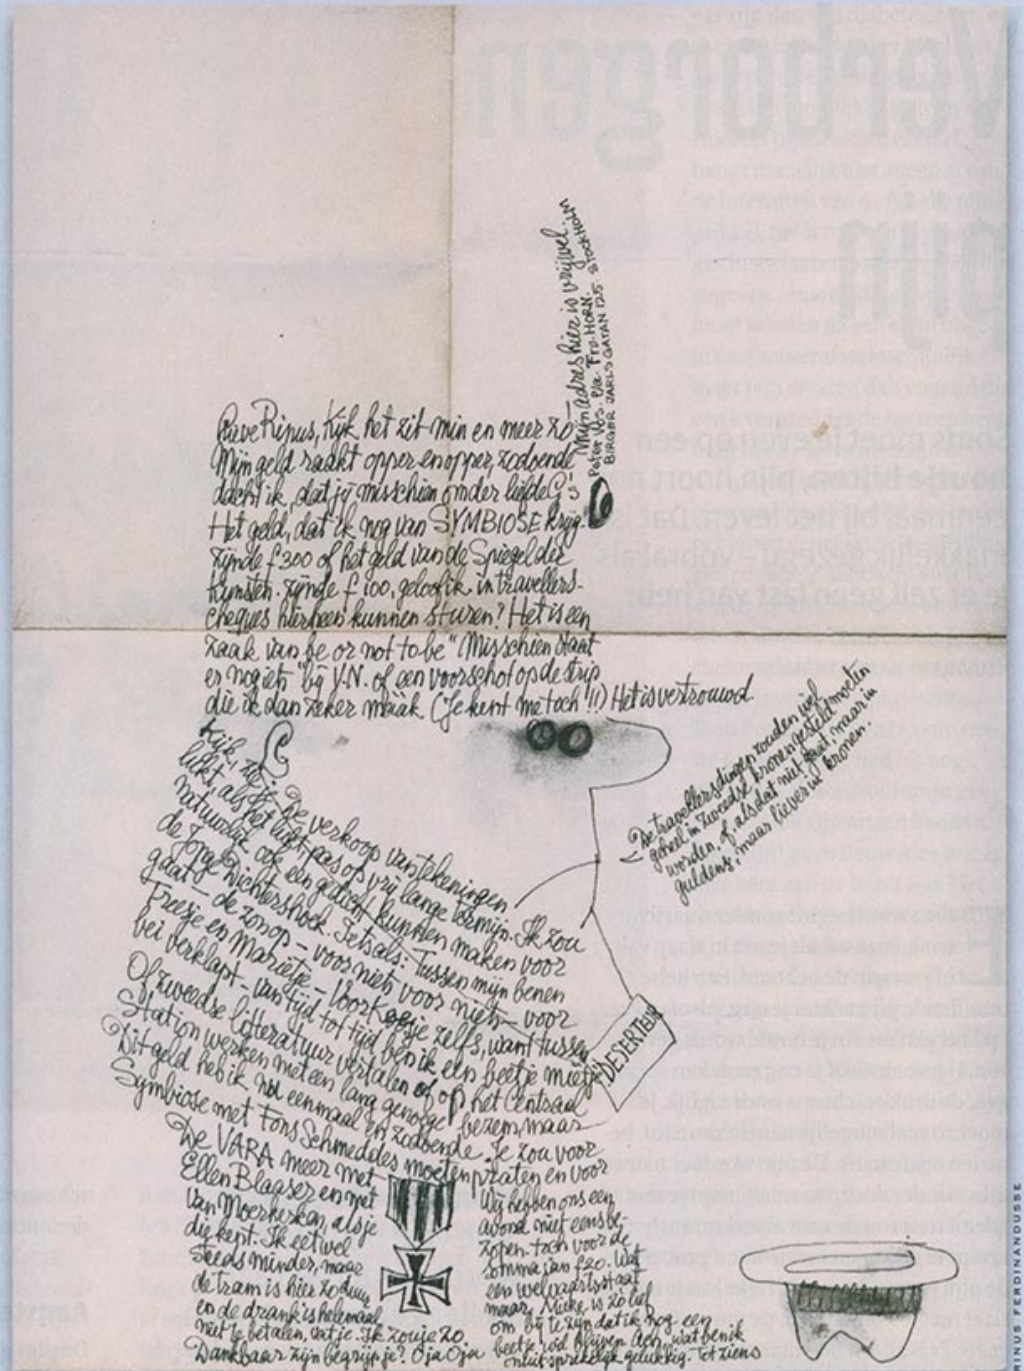 Mijn adres hier is vrijwel
Peter Vos. c/a Fru. HORN.
BIRGER JARLSGATAN 125. STOCKHOLM
Brave Rinus, Kijk het zit min en meer zo
Mijn geld raakt opper en opper, zodoende
dacht ik, dat jij misschien onder liefde G's
Het geld, dat ik nog van SYMBIOSE krijg.
zijnde f 300 of het geld van de Spiegel der
Kunsten. zijnde f 100, geloof ik, in travellers-
cheques hierheen kunnen sturen? Het is een
zaak van be or not to be" Misschien staat
er nog iets "bij V.N. of een voorschot op de strip
die ik dan zeker maak (Je kent me toch!!!) Het is vertrouwd.
De travellersdingen zouden wel
geheel in zweedse kronen gesteld moeten
worden, of, als dat niet gaat, maar in
guldens, maar liever in kronen.
Kijk, zie je. De verkoop van tekeningen
lukt, als het lukt, pas op vrij lange termijn. Ik zou
natuurlijk ook een gedicht kunnen maken voor
de Jonge Dichtershoek. Iets als: Tussen mijn benen
gaat - de zon op - voor niets voor niets - voor
Freesje en Marietje - Voor Koosje zelfs, want tussen
bei verklapt - van tijd tot tijd ben ik een beetje
Of zweedse litteratuur vertalen of op het Centraal
Station werken met een lang genoege bezem, maar
Dit geld heb ik nu eenmaal en zodoende. Je zou voor
Symbiose met Fons Schmedeles moeten praten en voor
DESERTEUR
De VARA meer met
Ellen Blaaser en met
van Moerkerken, als je
die kent. Ik eet wel
steeds minder, maar
de tram is hier zo duur
en de drank is helemaal
niet te betalen, dat je. Ik zou je zo
Dankbaar zijn begrijp je? O ja O ja
Wij hebben ons een
avond niet eens be-
zopen. toch voor de
somma van f20. Wat
een welvaartsstaat
maar, Mieke is zo lief
om bij te zijn dat ik nog een
beetje wil blijven. Ach, wat ben ik
onuitsprekelijk gelukkig. Tot ziens
INUS FERDINANDUSSE